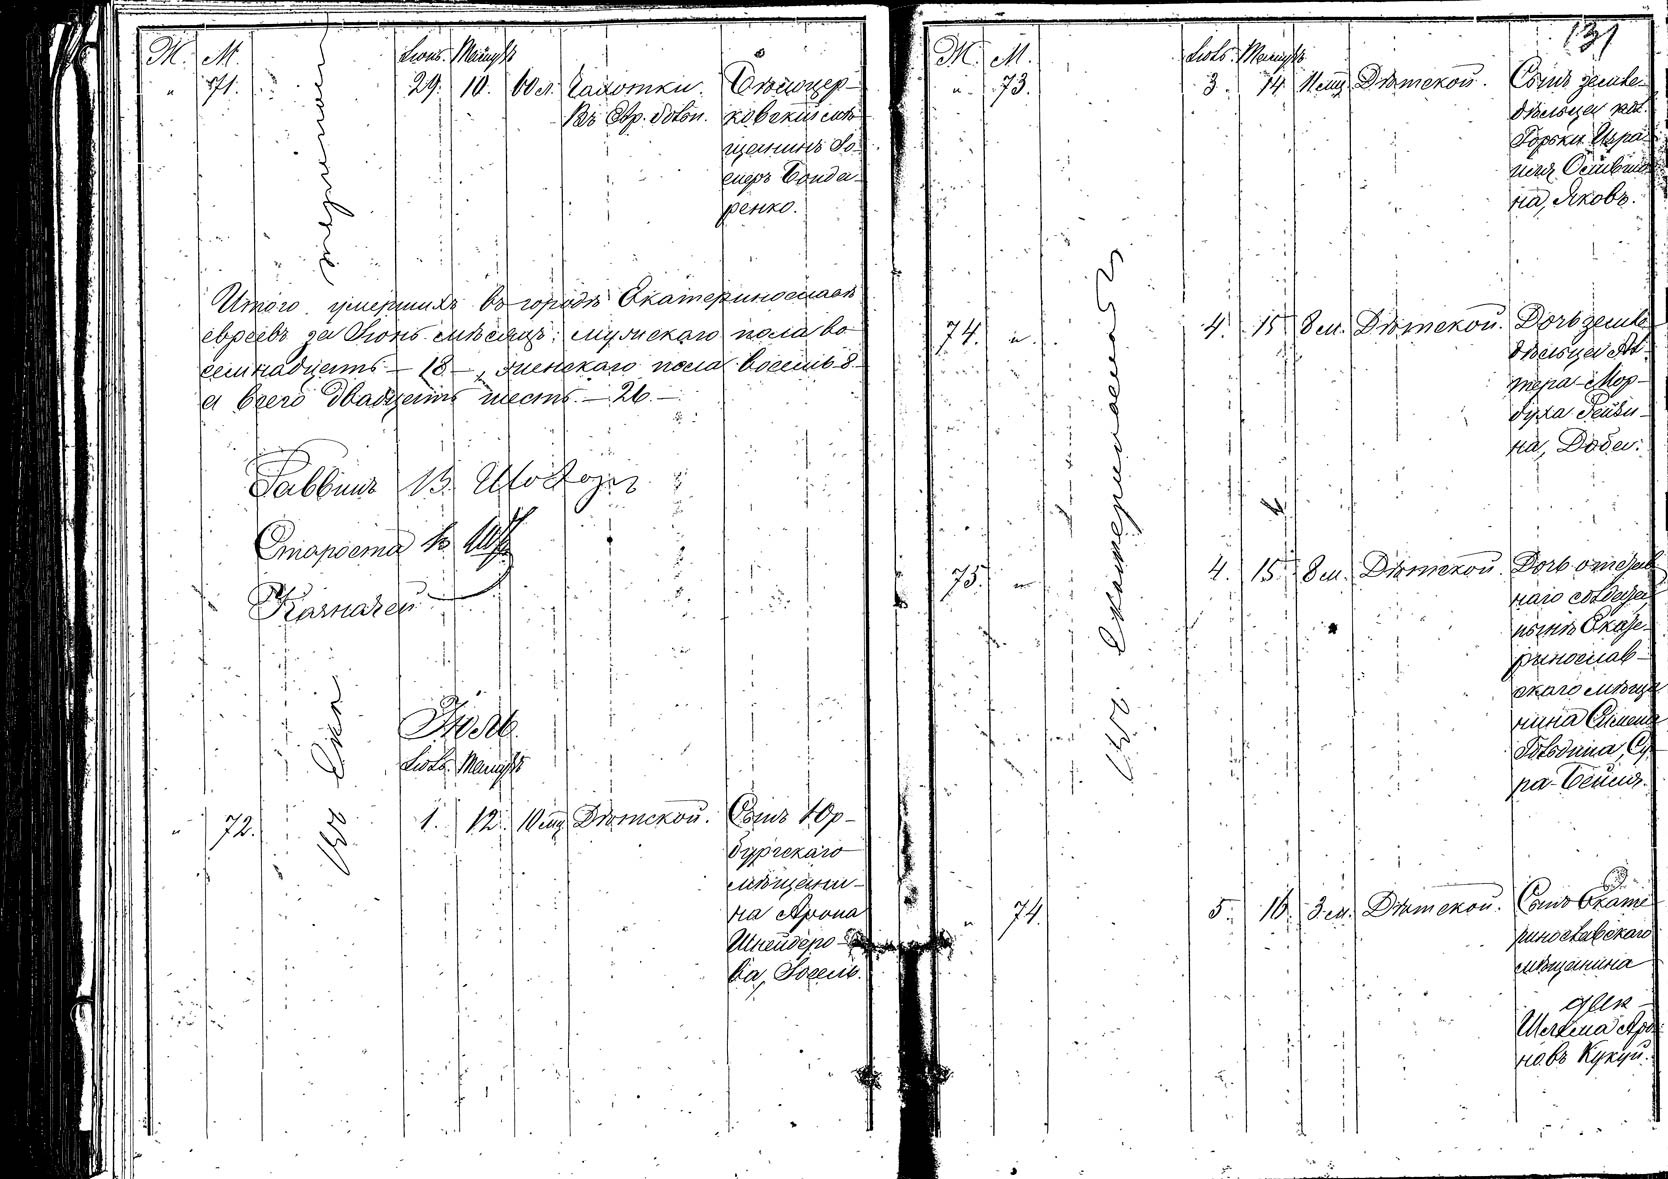 Ж. М. Іюнь. Тамузъ
" 71. 29. 10. 60 л. Чахотки. Бѣлоцер-
Въ Евр. больн. ковскій мѣ-
щанинъ Іо-
сифъ Бонда-
ренко.
Итого умершихъ въ городѣ Екатеринославѣ
евреевъ за Іюнь мѣсяцъ: мужскаго пола во
семнадцать — 18 —, женскаго пола восемь 8 —
а всего двадцать шесть. — 26. —
Раввинъ В.
Староста
Казначей
Въ Ека
Іюль.
Іюль. Тамузъ
" 72. 1. 12. 10 мц. Дѣтской. Сынъ Юр-
бургскаго
мѣщани-
на Арона
Шнейдеро-
ва, Іосель.
131
Ж. М. Іюль. Тамузъ
" 73. 3. 14. 11 мц. Дѣтской. Сынъ земле-
дѣльца кол.
Горьки Изра-
иля
на, Яковъ.
Екатеринославѣ
74. " 4. 15. 8 м. Дѣтской. Дочь земле
дѣльца Ал-
тера-Мор-
духа Рейзи-
на, Доба.
75. " 4. 15. 8 м. Дѣтской. Дочь отстав
наго солдата,
нынѣ Екате-
ринослав-
скаго мѣща
нина Симона
Гольдина, Су-
ра-Бейля.
" 74. 5. 16. 3 м. Дѣтской. Сынъ Екате-
ринославскаго
мѣщанина
Шлема Аро-
новъ Кукуй.